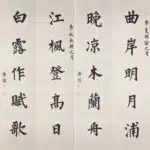 曲岸明月浦
晚凉木蘭舟
江楓登高日
白露作賦歌